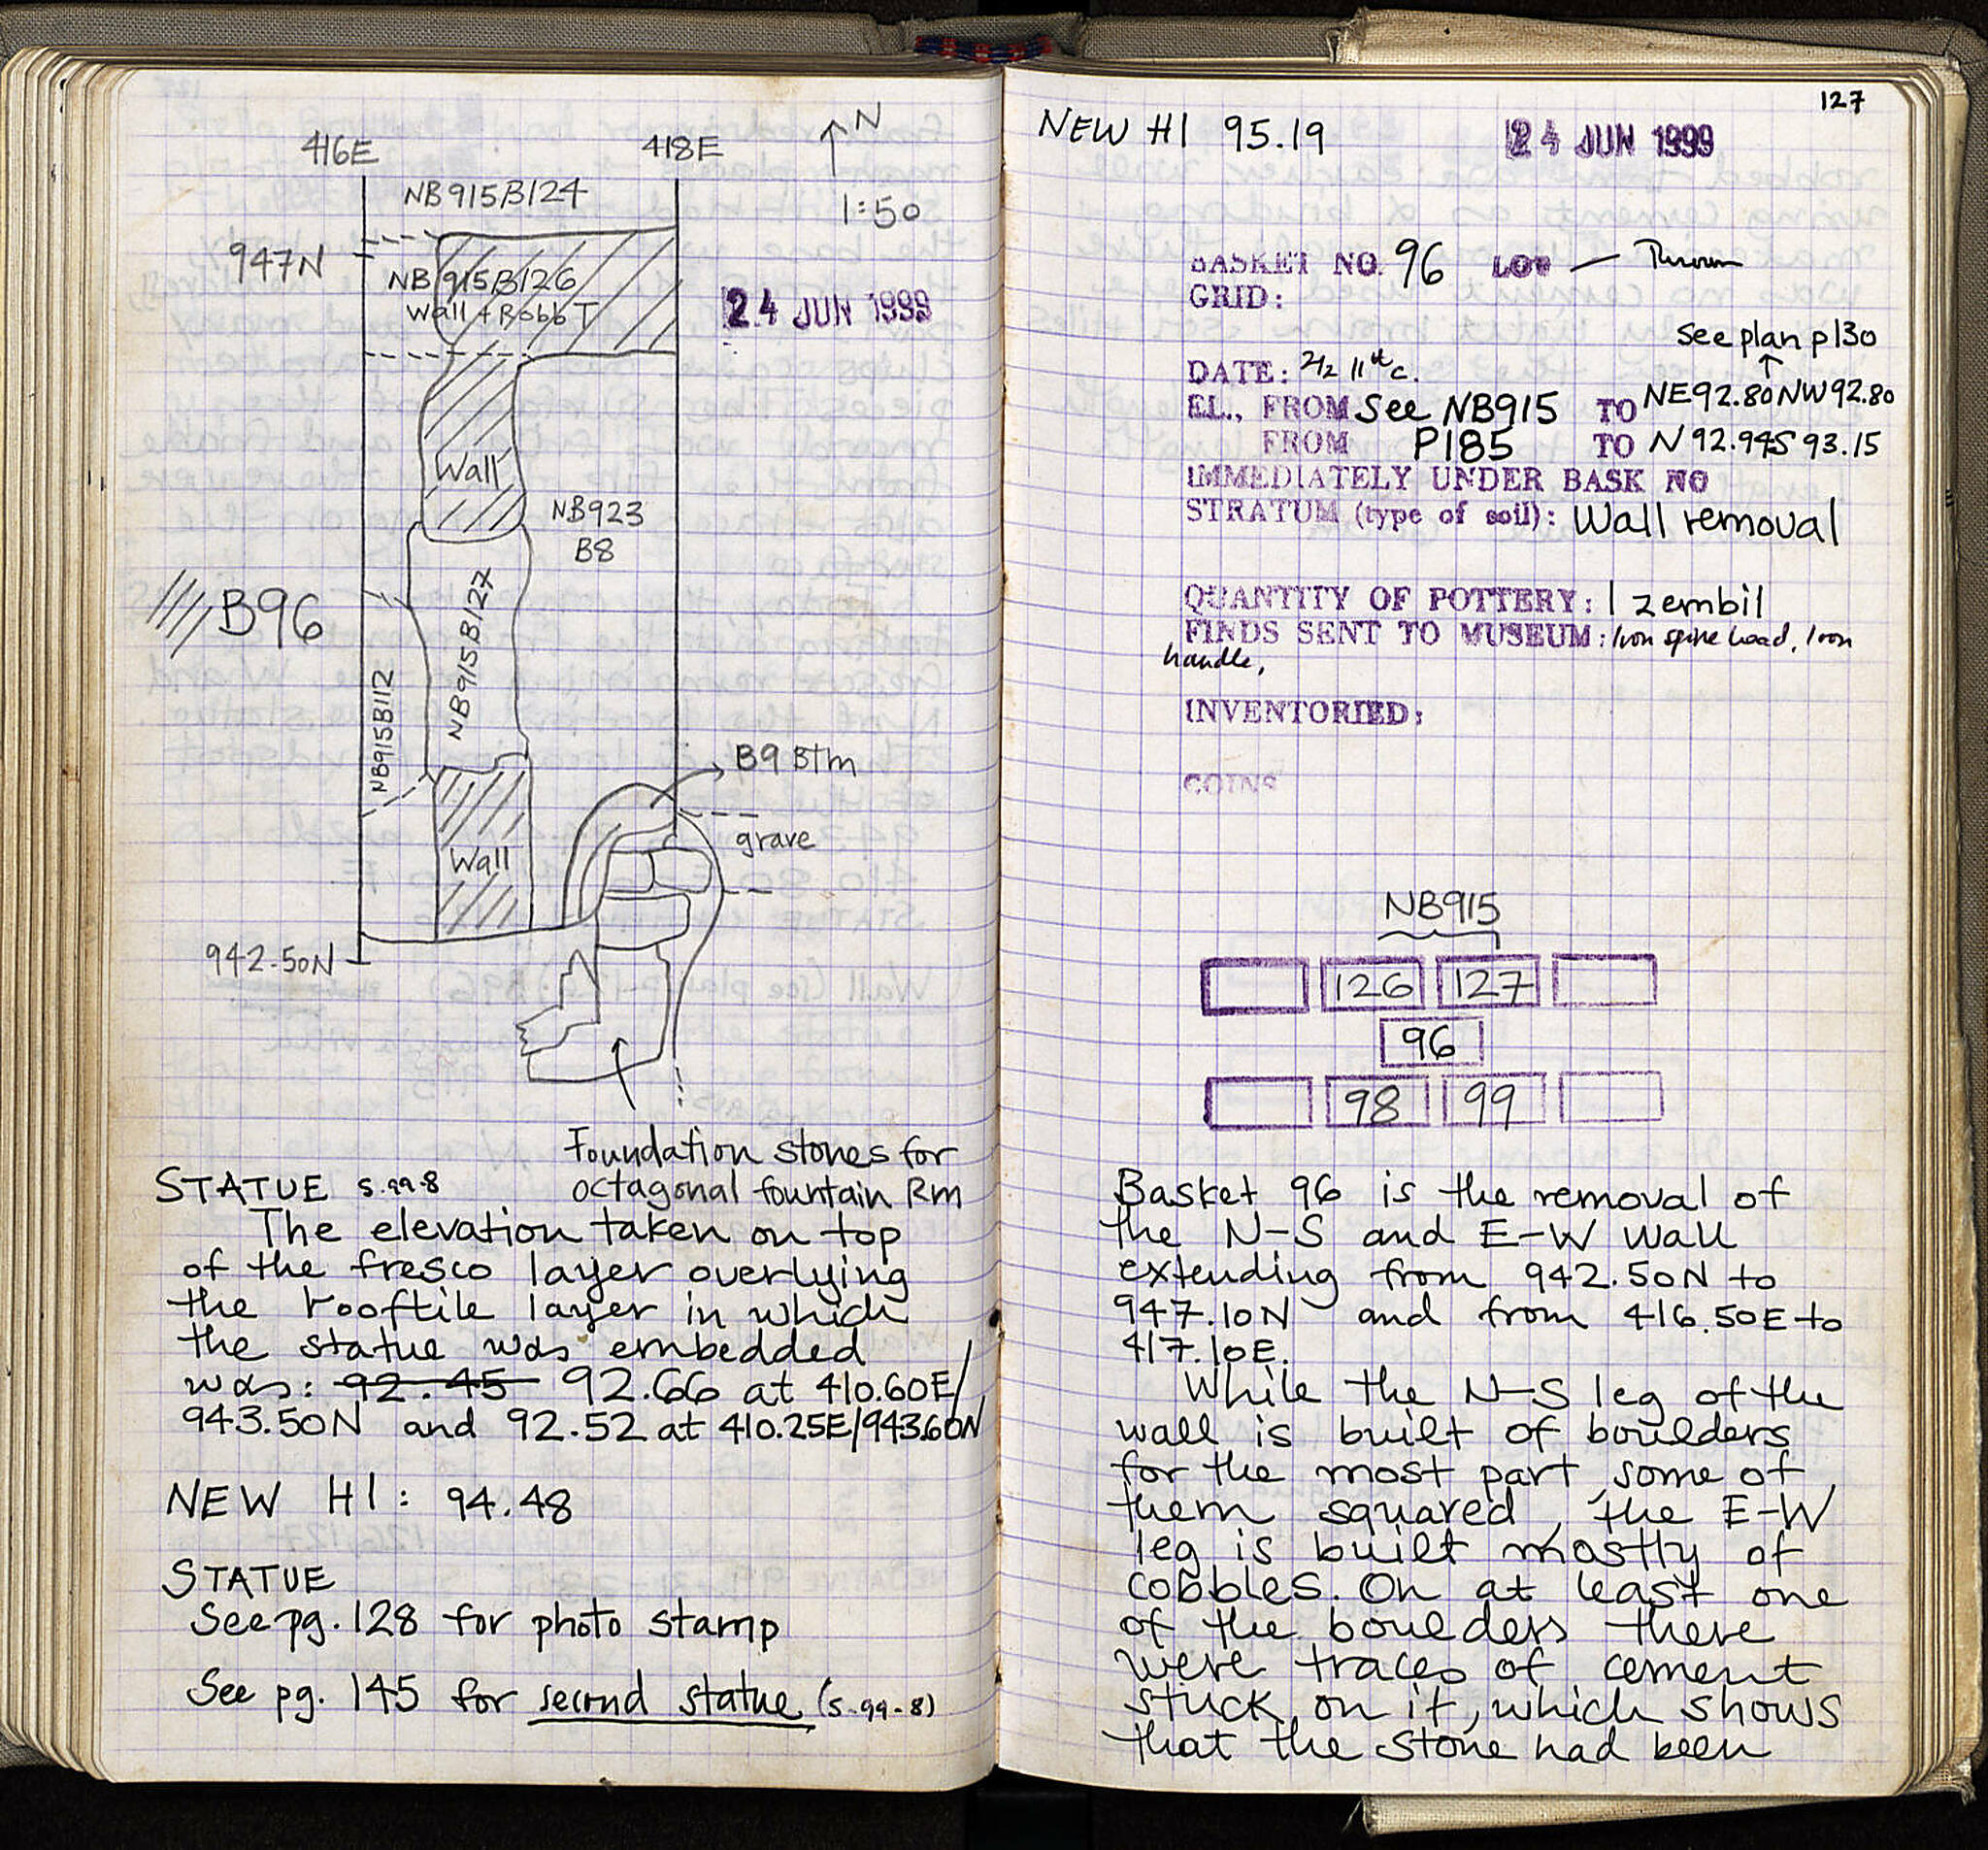 N
416E 418E
NB915B124 1:50
947N
NB915B126
Wall + Robb T
24 JUN 1999
Wall
NB923
B8
B96
NB915B127
NB915B112
B9 Btm
grave
Wall
942.50N
Foundation stones for
octagonal fountain Rm
STATUE S.99.8
The elevation taken on top
of the fresco layer overlying
the rooftile layer in which
the statue was embedded
was: 92.45 92.66 at 410.60E/
943.50N and 92.52 at 410.25E/943.60N
NEW HI: 94.48
STATUE
See pg. 128 for photo stamp
See pg. 145 for second statue (S-99-8)
127
NEW HI 95.19 24 JUN 1999
BASKET NO. 96 LOT —
GRID:
see plan p130
DATE: 2/2 11th c.
EL., FROM See NB915 TO NE92.80 NW92.80
FROM P185 TO N 92.94 S 93.15
IMMEDIATELY UNDER BASK NO
STRATUM (type of soil): Wall removal
QUANTITY OF POTTERY: 1 zembil
FINDS SENT TO MUSEUM: Iron head, Iron
handle,
INVENTORIED:
COINS
NB915
126 127
96
98 99
Basket 96 is the removal of
the N-S and E-W wall
extending from 942.50N to
947.10N and from 416.50E to
417.10E.
While the N-S leg of the
wall is built of boulders
for the most part, some of
them squared, the E-W
leg is built mostly of
cobbles. On at least one
of the boulders there
were traces of cement
stuck on it, which shows
that the stone had been